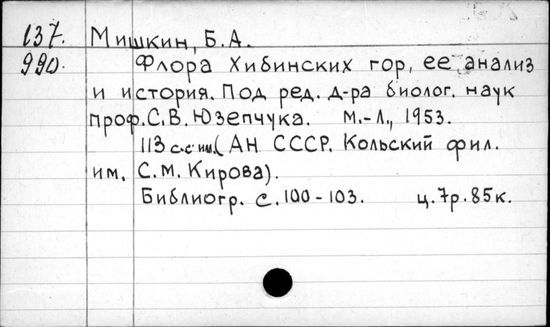 137. Мишкин, Б.А.
990. Флора Хибинских гор, ее анализ
и история. Под ред. д-ра биолог. наук
проф. С.В. Юзепчука. М.-Л., 1953.
113 с. с илл. (АН СССР. Кольский фил.
им. С.М. Кирова).
Библиогр. с. 100-103. ц. 7р. 85к.